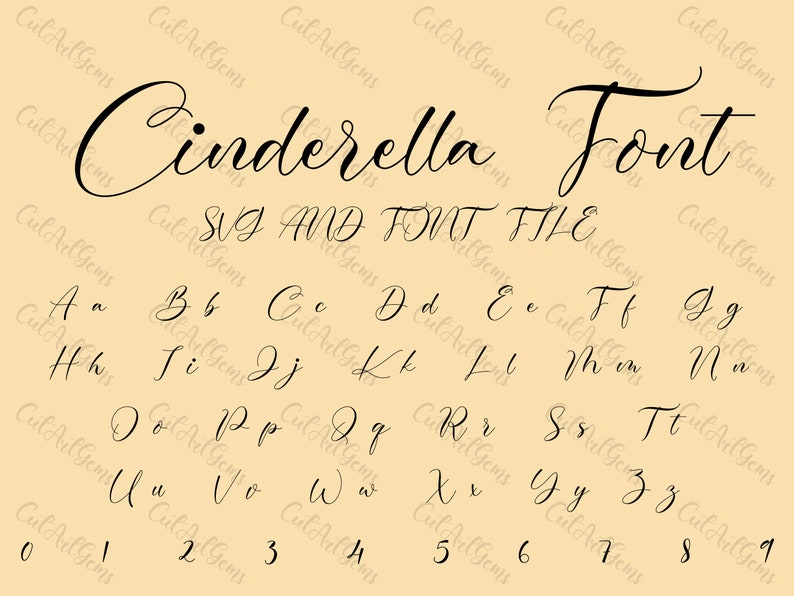 Cinderella Font
SVG AND FONT FILE
A a B b C c D d E e F f G g
H h I i J j K k L l M m N n
O o P p Q q R r S s T t
U u V v W w X x Y y Z z
0 1 2 3 4 5 6 7 8 9
CutArtGems